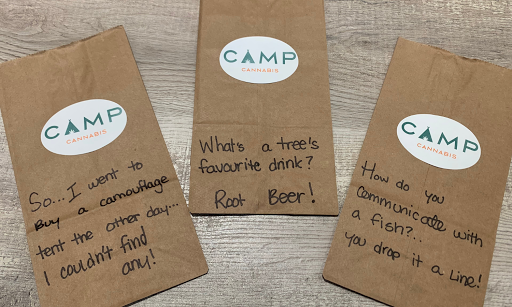 CAMP
CANNABIS
So...I went to
Buy a camouflage
tent the other day...
I couldn't find
any!
CAMP
CANNABIS
What's a tree's
favourite drink?
Root Beer!
CAMP
CANNABIS
How do you
communicate with
a fish?..
you drop it a Line!